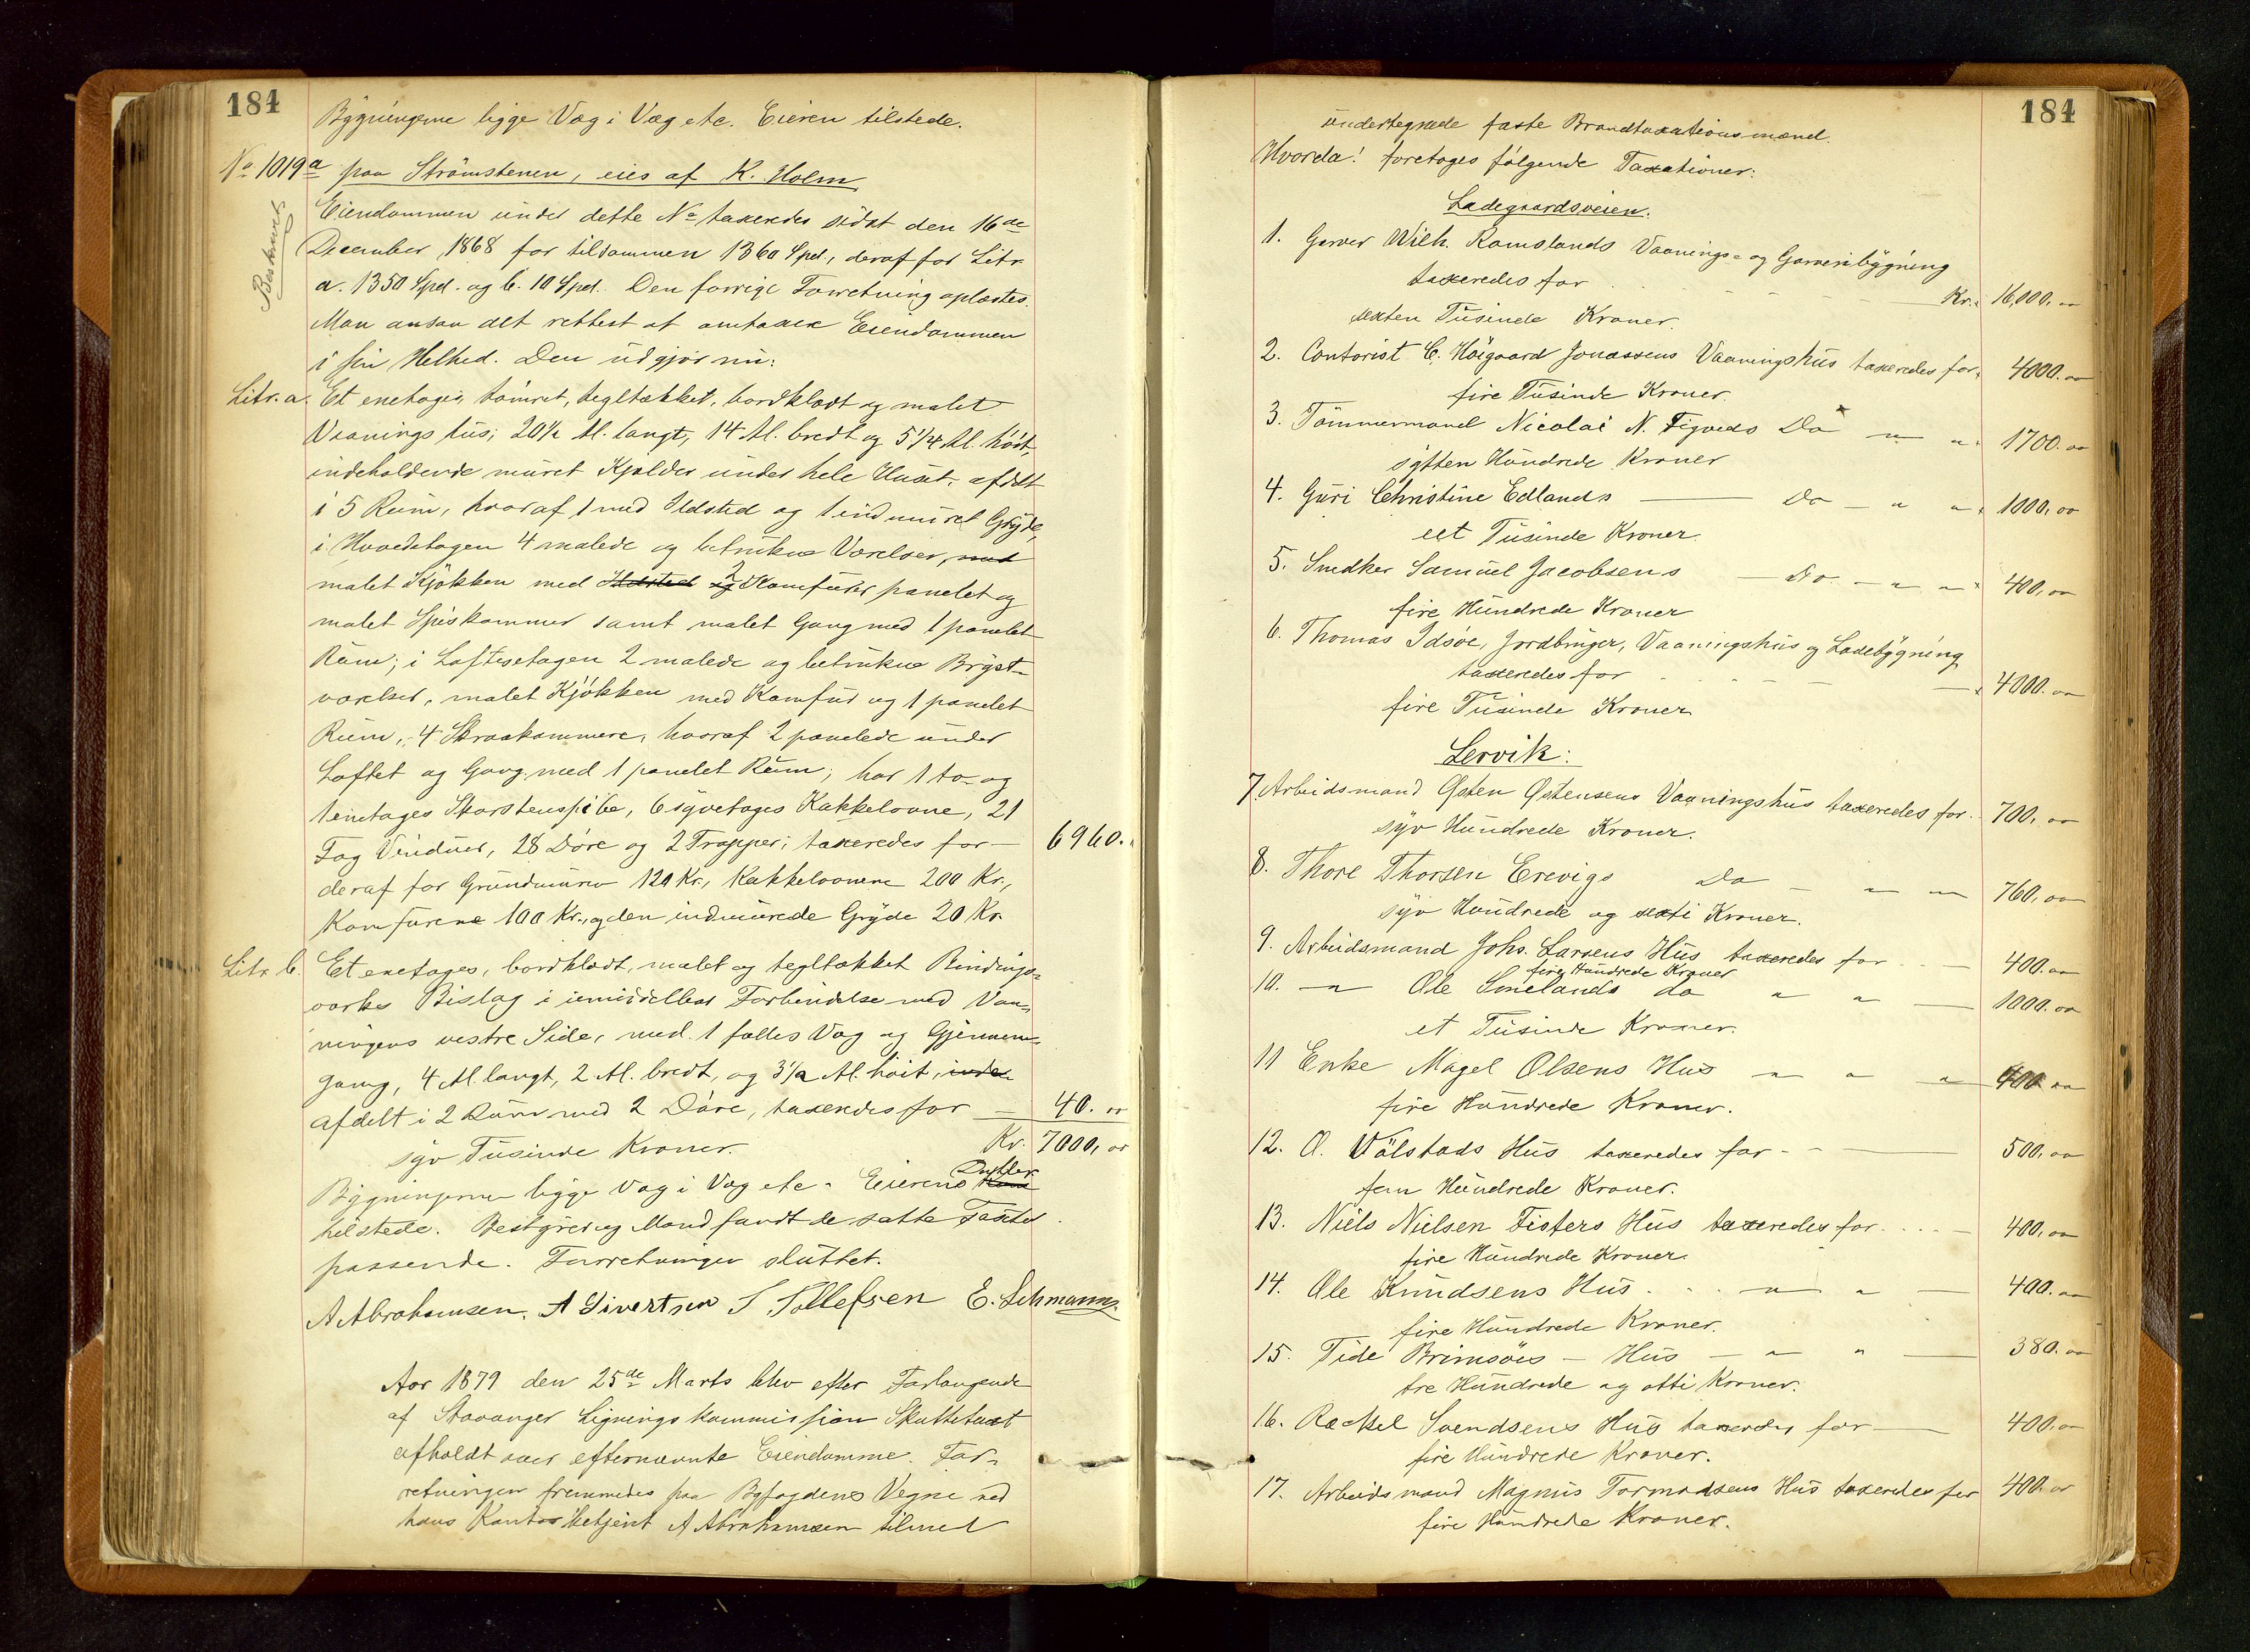 184
Bygningerne ligge Væg i Væg etc. Eieren tilstede.
No 1019a paa Strømstenen, eies af K. Holm
Beskrevet
Eiendommen under dette No taxeredes sidst den 16de
December 1868 for tilsammen 1360 Spd., deraf for Litr
a. 1350 Spd. og b. 10 Spd. Den forrige Forretning oplæstes.
Man ansaa det rettest at omtaxere Eiendommen
i sin Helhed. Den udgjør nu:
Litr. a. Et enetages, tømret, tegltækket, bordklædt og malet
Vaaningshus; 20½ Al. langt, 14 Al. bredt og 5¼ Al. høit,
indeholdende muret Kjælder under hele Huset, afdelt
i 5 Rum, hvoraf 1 med Ildsted og 1 indmuret Gryde,
i Hovedetagen 4 malede og betrukne Værelser, med
malet Kjøkken med Ildsted og 2 Komfurer panelet og
malet Spiskammer samt malet Gang med 1 panelet
Rum; i Loftsetagen 2 malede og betrukne Bryst-
værelser, malet Kjøkken med Komfur og 1 panelet
Rum, 4 Skraakammere, hvoraf 2 panelede under
Loftet og Gang med 1 panelet Rum; har 1 to- og
1 enetages Skorstenspibe, 6 syvetages Kakkelovne, 21
Fag Vinduer, 28 Døre og 2 Trapper; taxeredes for — 6960. "
deraf for Grundmuren 120 Kr., Kakkelovnene 200 Kr.,
Komfurene 100 Kr., og den indmurede Gryde 20 Kr.
Litr. b. Et enetages, bordklædt, malet og tegltækket Bindings-
værks Bislag i umiddelbar Forbindelse med Vaa-
ningens vestre Side, med 1 fælles Væg og Gjennem-
gang, 4 Al. langt, 2 Al. bredt, og 3½ Al. høit, inde-
afdelt i 2 Rum med 2 Døre, taxeredes for — 40. oo
syv Tusinde Kroner. Kr. 7000, oo
Bygningerne ligge Væg i Væg etc. Eierens Datter
tilstede. Bestyrer og Mænd fandt de satte Taxter
passende. Forretningen sluttet.
A Abrahamsen. A Sivertsen S. Tollefsen E. Lehmann
Aar 1879 den 25de Marts blev efter Forlangende
af Stavanger Ligningskommission Skattetaxt
afholdt over efternævnte Eiendomme. For-
retningen fremmedes paa Byfogdens Vegne ved
hans Kontorbetjent A Abrahamsen tilmed
184
undertegnede faste Brandtaxationsmænd.
Hvorda! foretoges følgende Taxationer:
Ladegaardsveien.
1. Garver Wilh. Ramslands Vaanings- og Garveribygning
taxeredes for — Kr. 16,000, oo
sexten Tusinde Kroner.
2. Contorist C. Høigaard Jonassens Vaaningshus taxeredes for 4000. oo
fire Tusinde Kroner.
3. Tømmermand Nicolai N. Figveds Do " " 1700. oo
sytten Hundrede Kroner
4. Guri Christine Edlands — Do — " " 1000, oo
eet Tusinde Kroner.
5. Snedker Samuel Jacobsens — Do — " " 400, oo
fire Hundrede Kroner
6. Thomas Idsøe, Jordbruger, Vaaningshus og Ladebygning
taxeredes for — 4000. oo
fire Tusinde Kroner
Lervik:
7. Arbeidsmand Østen Østensens Vaaningshus taxeredes for. 700, oo
syv Hundrede Kroner.
8. Thore Thorsen Erevigs Do — " " 760, oo
syv Hundrede og sexti Kroner.
9. Arbeidsmand Johs. Larsens Hus taxeredes for — 400. oo
fire Hundrede Kroner
10. — " Ole Smelands do " " — 1000. oo
et Tusinde Kroner.
11 Enke Magel Olsens Hus " " " 400 oo
fire Hundrede Kroner.
12. O. Vølstads Hus taxeredes for - — 500, oo
fem Hundrede Kroner.
13. Niels Nielsen Fisters Hus taxeredes for — 400, oo
fire Hundrede Kroner.
14. Ole Knudsens Hus . . " " — 400. oo
fire Hundrede Kroner.
15. Tide Brimsøes — Hus — " " — 380. oo
tre Hundrede og otti Kroner.
16. Rachel Svendsens Hus taxeredes for — 400. oo
fire Hundrede Kroner.
17. Arbeidsmand Magnus Tormodsens Hus taxeredes for 400. oo
fire Hundrede Kroner.